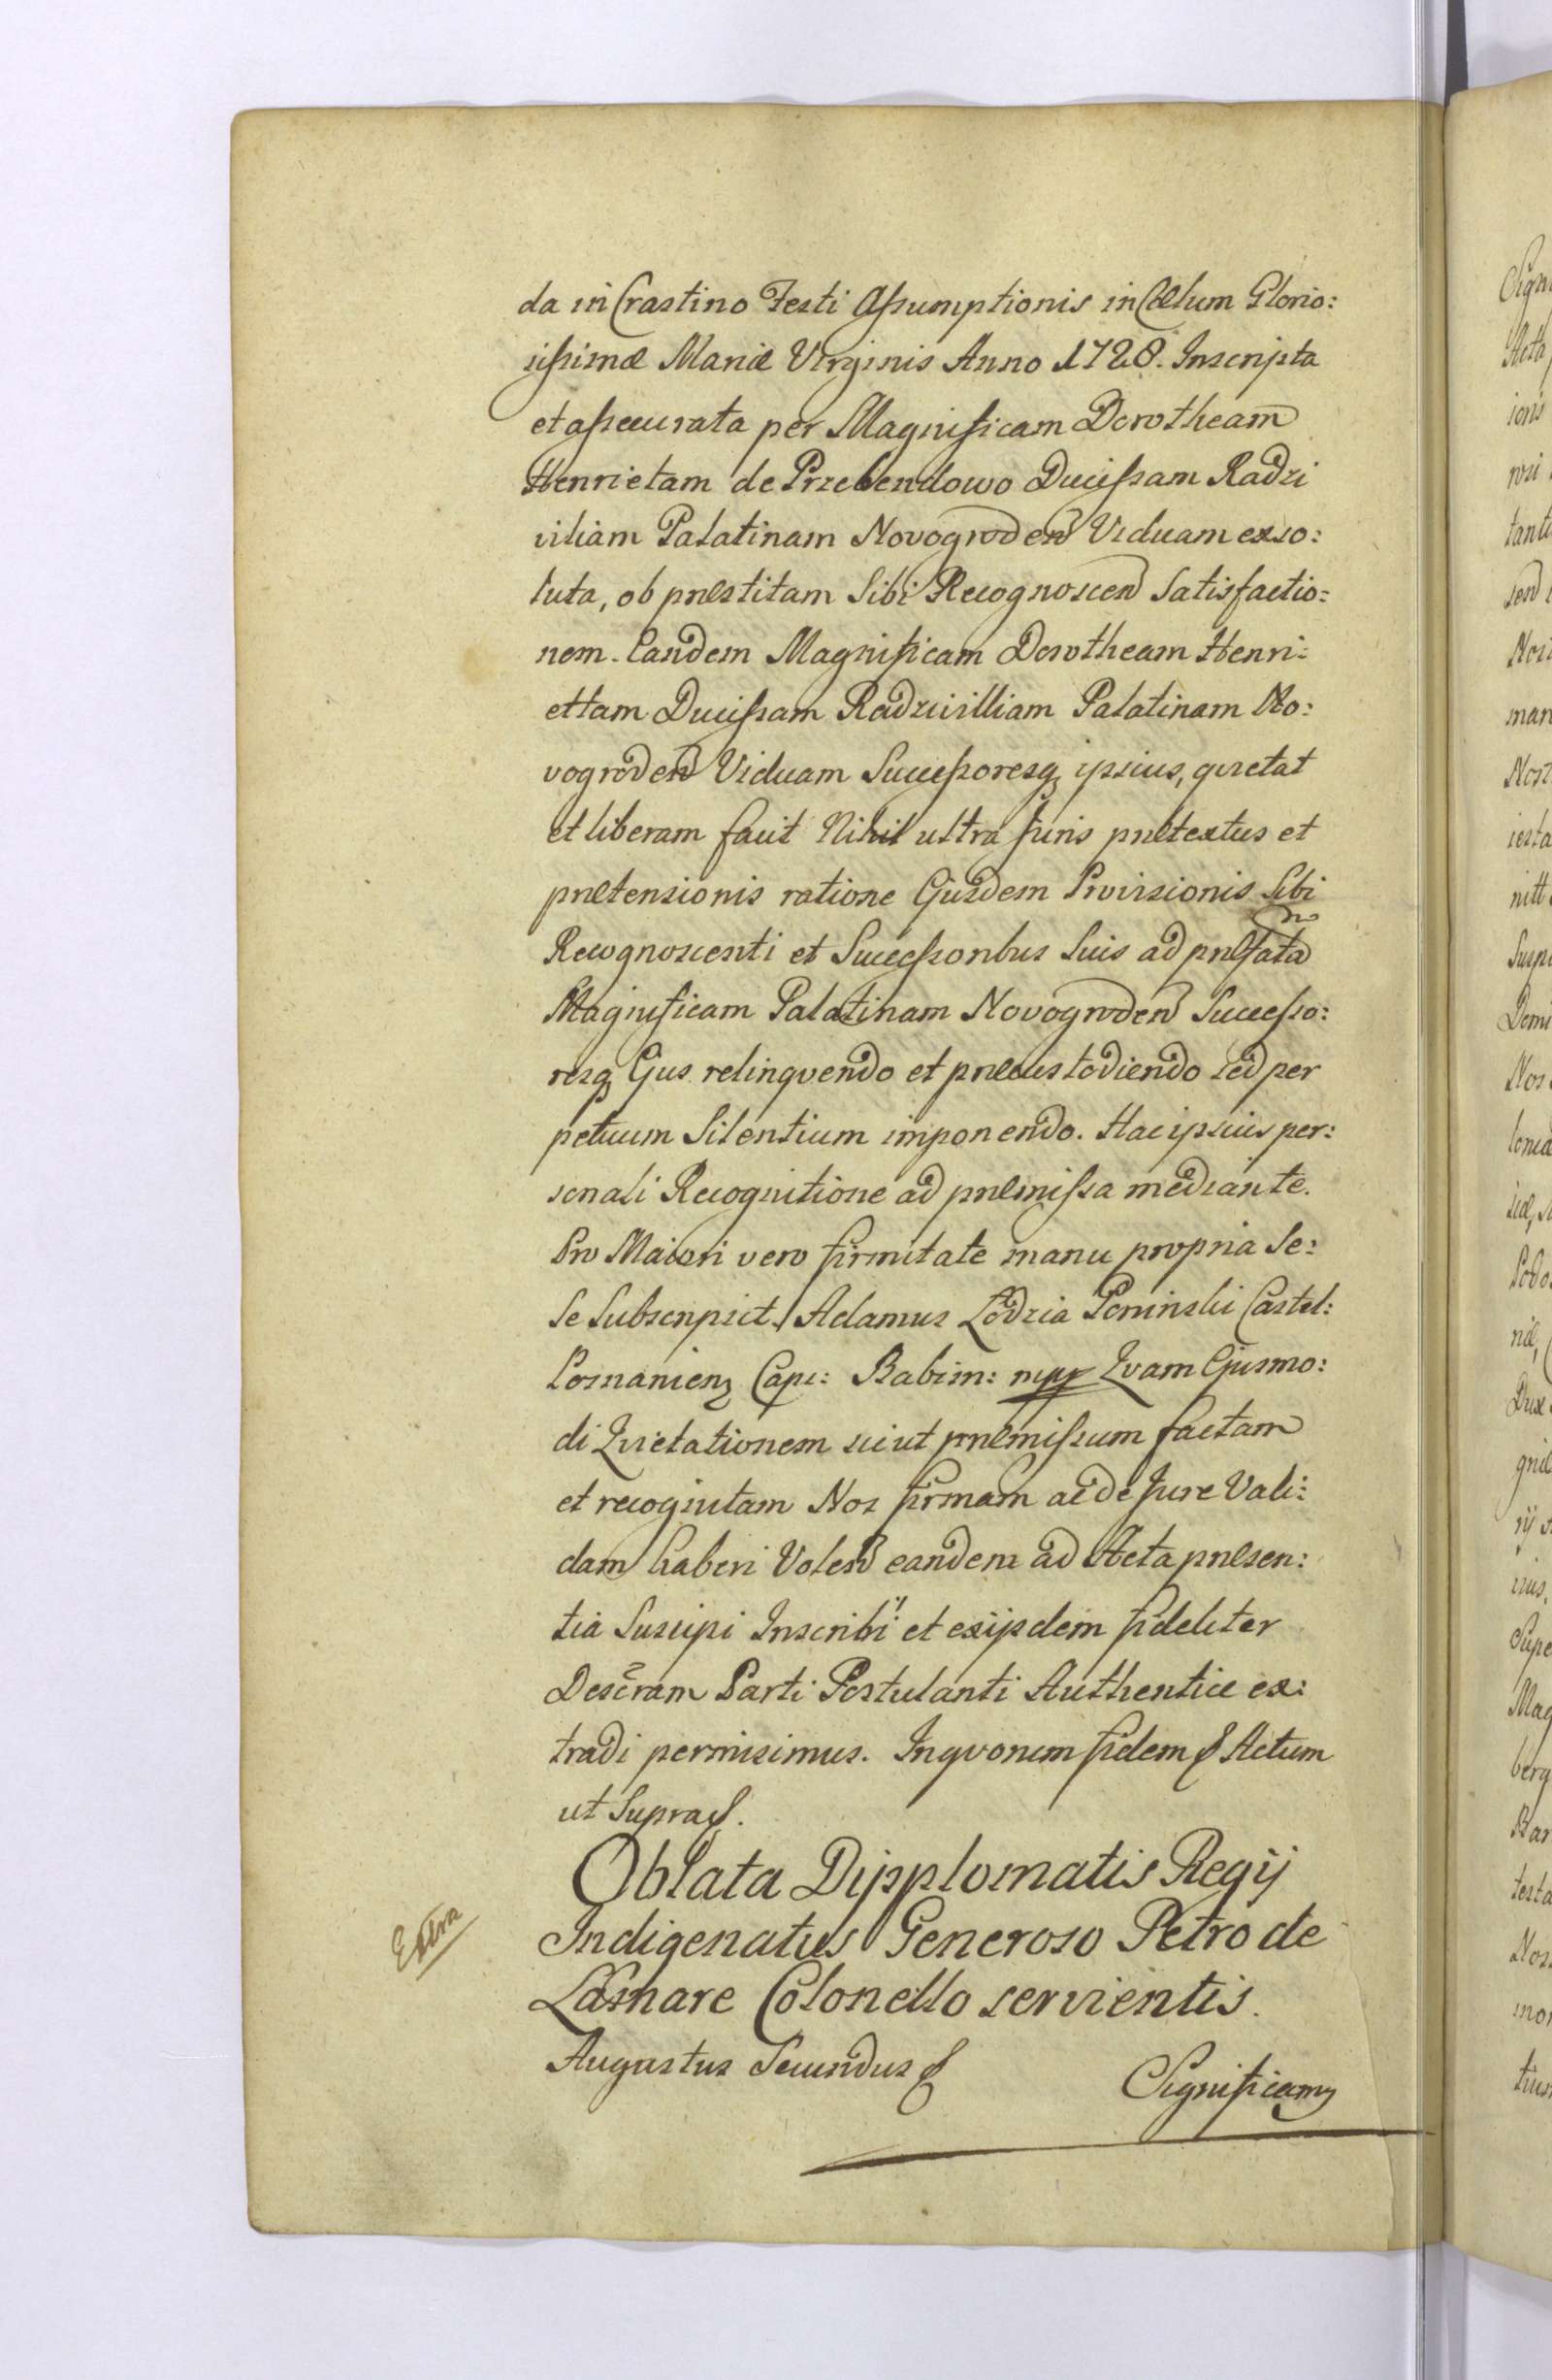 da in Crastino Festi Assumptionis in Cœlum Glorio:
sissimæ Mariæ Virginis Anno 1728. Inscripta
et assecurata per Magnificam Dorotheam
Henrietam de Przebendowo Ducissam Radzi
viliam Palatinam Novogroden Viduam exso:
luta, ob præstitam Sibi Recognoscen Satisfactio:
nem. Eandem Magnificam Dorotheam Henri:
ettam Ducissam Radziwilliam Palatinam No:
vogroden Viduam Successoresq ipsius, qvietat
et liberam facit Nihil ultra Juris prætextus et
prætensionis ratione Ejusdem Provisionis Sibi
Recognoscenti et Successoribus Suis ad præfata
Magnificam Palatinam Novogroden Successo:
resq Ejus relinqvendo et præcustodiendo sed per
petuum Silentium imponendo. Hac ipsius per:
sonali Recognitione ad præmissa mediante.
Pro Maiori vero firmitate manu propria Se:
se Subscripsit. Adamus Łodzia Poninski Castel:
Posnanien Capi: Babim: mpp Qvam Ejusmo:
di Qvietationem sicut præmissum factam
et recognitam Nos firmam ac de Jure Vali:
dam haberi Volen eandem ad Acta præsen:
tia Suscipi Inscribi et exijsdem fideliter
Descram Parti Postulanti Authentice ex:
tradi permisimus. Inqvorum fidem & Actum
ut Supra &.
Extra
Oblata Dipplomatis Regij
Indigenatus Generoso Petro de
Lamare Colonello servientis.
Augustus Secundus &
Significamq